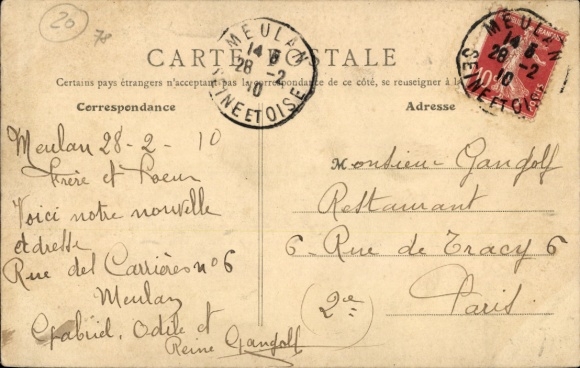 20
78
CARTE POSTALE
Certains pays étrangers n'acceptant pas la correspondance de ce côté, se renseigner à la
Correspondance
Adresse
MEULAN
14 5
28 -2
10
SEINE ET OISE
MEULAN
14 5
28 -2
10
SEINE ET OISE
10
Meulan 28-2-10
Frère et Soeur
Voici notre nouvelle
adresse
Rue des Carrières n° 6
Meulan
Gabriel, Odile et
Reine Gangolf
Monsieur Gangolf
Restaurant
6 - Rue de Tracy 6
Paris.
(2e)